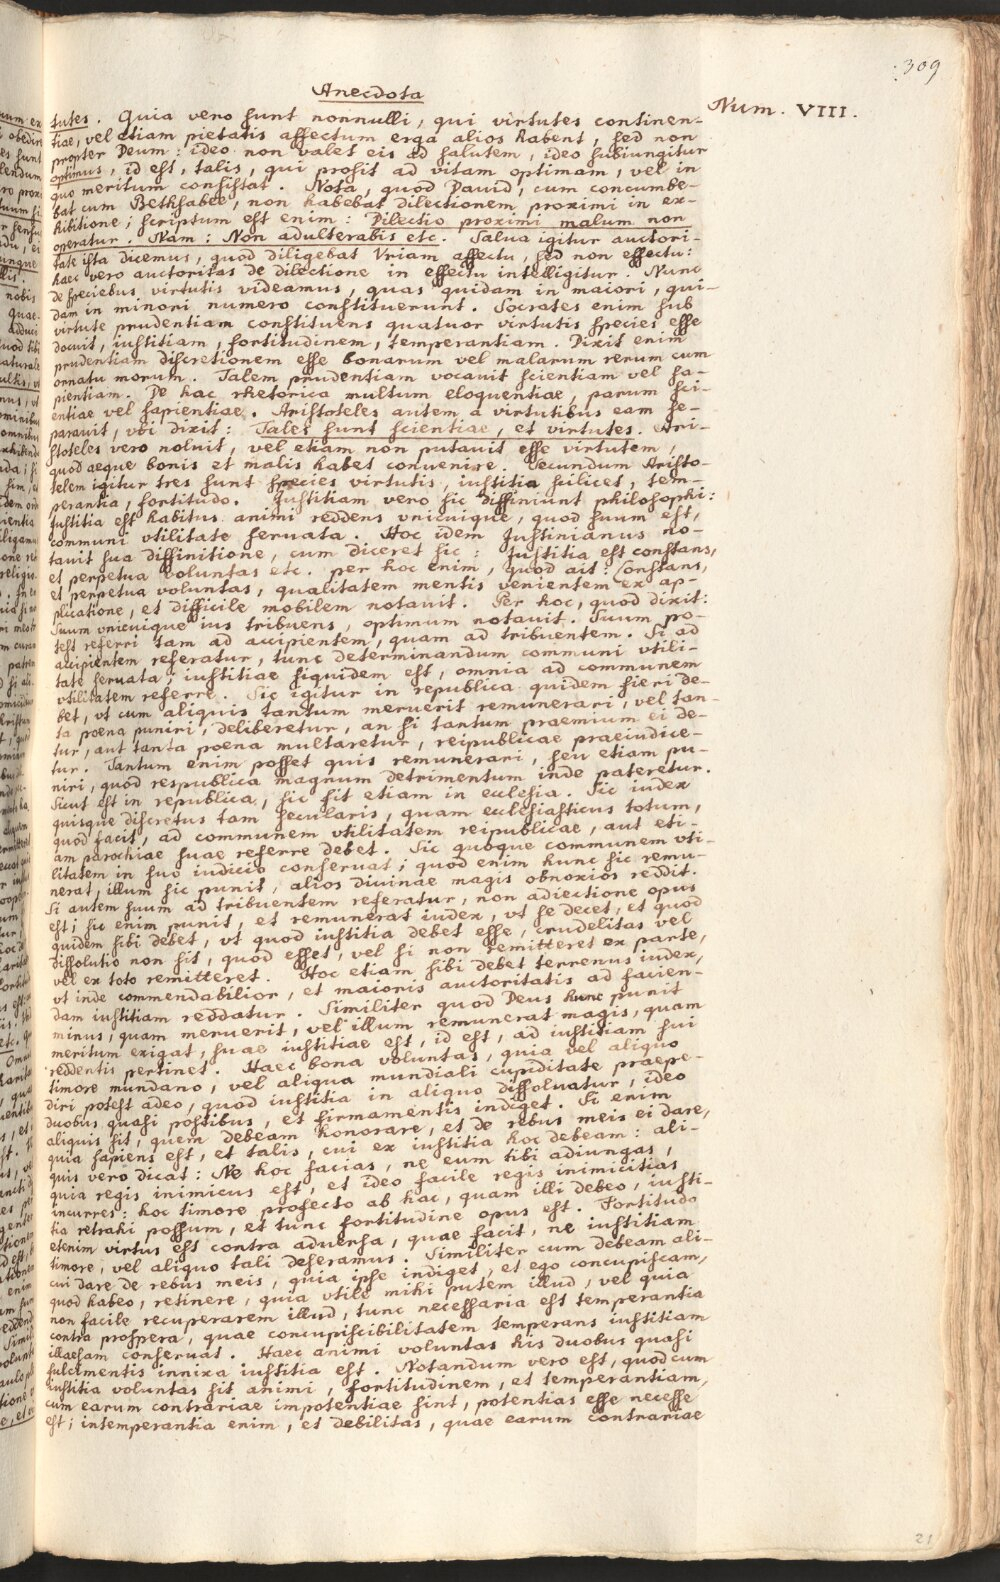 309
Anecdota
Num. VIII.
tutes. Quia vero sunt nonnulli, qui virtutes continen-
tiae, vel etiam pietatis affectum erga alios habent, sed non
propter Deum: ideo non valet eis ad salutem, ideo subiungitur
optimus, id est, talis, qui prosit ad vitam optimam, vel in
quo meritum consistat. Nota, quod Dauid, cum concumbe-
bat cum Bethsabee, non habebat dilectionem proximi in ex-
hibitione; scriptum est enim: Dilectio proximi malum non
operatur. Nam: Non adulterabis etc. Salua igitur auctori-
tate ista dicemus, quod diligebat Vriam affectu, sed non effectu:
haec vero auctoritas de dilectione in effectu intelligitur. Nunc
de speciebus virtutis videamus, quas quidam in maiori, qui-
dam in minori numero constituerunt. Socrates enim sub
virtute prudentiam constituens quatuor virtutis species esse
docuit, iustitiam, fortitudinem, temperantiam. Dixit enim
prudentiam discretionem esse bonarum vel malarum rerum cum
ornatu morum. Talem prudentiam vocauit scientiam vel sa-
pientiam. De hac rhetorica multum eloquentiae, parum sci-
entiae vel sapientiae. Aristoteles autem a virtutibus eam se-
parauit, vbi dixit: Tales sunt scientiae, et virtutes. Ari-
stoteles vero noluit, vel etiam non putauit esse virtutem,
quod aeque bonis et malis habet conuenire. Secundum Aristo-
telem igitur tres sunt species virtutis, iustitia scilicet, tem-
perantia, fortitudo. Iustitiam vero sic diffiniunt philosophi:
Iustitia est habitus animi reddens vnicuique, quod suum est,
communi vtilitate seruata. Hoc idem Justinianus no-
tauit sua diffinitione, cum diceret sic: Iustitia est constans,
et perpetua voluntas etc. per hoc enim, quod ait: Constans,
et perpetua voluntas, qualitatem mentis venientem ex ap-
plicatione, et difficile mobilem notauit. Per hoc, quod dixit:
Suum vnicuique ius tribuens, optimum notauit. Suum po-
test referri tam ad accipientem, quam ad tribuentem. Si ad
accipientem referatur, tunc determinandum communi vtili-
tate seruata; iustitiae siquidem est, omnia ad communem
vtilitatem referre. Sic igitur in republica quidem fieri de-
bet, vt cum aliquis tantum meruerit remunerari, vel tan-
ta poena puniri, deliberetur, an si tantum praemium ei de-
tur, aut tanta poena multaretur, reipublicae praeiudice-
tur. Tantum enim posset quis remunerari, seu etiam pu-
niri, quod respublica magnum detrimentum inde pateretur.
Sicut est in republica, sic fit etiam in ecclesia. Sic iudex
quisque discretus tam secularis, quam ecclesiasticus totum,
quod facit, ad communem vtilitatem reipublicae, aut eti-
am parochiae suae referre debet. Sic quoque communem vti-
litatem in suo iudicio conseruat; quod enim hunc sic remu-
nerat, illum sic punit, alios diuinae magis obnoxios reddit.
Si autem suum ad tribuentem referatur, non adiectione opus
est; sic enim punit, et remunerat iudex, vt se decet, et quod
quidem sibi debet, vt quod iustitia debet esse, crudelitas vel
dissolutio non sit, quod esset, vel si non remitteret ex parte,
vel ex toto remitteret. Hoc etiam sibi debet terrenus iudex,
vt inde commendabilior, et maioris auctoritatis ad facien-
dam iustitiam reddatur. Similiter quod Deus hunc punit
minus, quam meruerit, vel illum remunerat magis, quam
meritum exigat, suae iustitiae est, id est, ad iustitiam sui
reddentis pertinet. Haec bona voluntas, quia vel aliquo
timore mundano, vel aliqua mundiali cupiditate praepe-
diri potest adeo, quod iustitia in aliquo dissoluatur, ideo
duobus quasi postibus, et firmamentis indiget. Si enim
aliquis sit, quem debeam honorare, et de rebus meis ei dare,
quia sapiens est, et talis, cui ex iustitia hoc debeam: ali-
quis vero dicat: Ne hoc facias, ne eum tibi adiungas,
quia regis inimicus est, et ideo facile regis inimicitias
incurres: hoc timore profecto ab hac, quam illi debeo, iusti-
tia retrahi possum, et tunc fortitudine opus est. Fortitudo
etenim virtus est contra aduersa, quae facit, ne iustitiam
timore, vel aliquo tali deseramus. Similiter cum debeam ali-
cui dare de rebus meis, quia ipse indiget, et ego concupiscam,
quod habeo, retinere, quia vtile mihi putem illud, vel quia
non facile recuperarem illud, tunc necessaria est temperantia
contra prospera, quae concupiscibilitatem temperans iustitiam
illaesam conseruat. Haec animi voluntas his duobus quasi
fulcimentis innixa iustitia est. Notandum vero est, quod cum
iustitia voluntas sit animi, fortitudinem, et temperantiam,
cum earum contrariae impotentiae sint, potentias esse necesse
est; intemperantia enim, et debilitas, quae earum contrariae
21